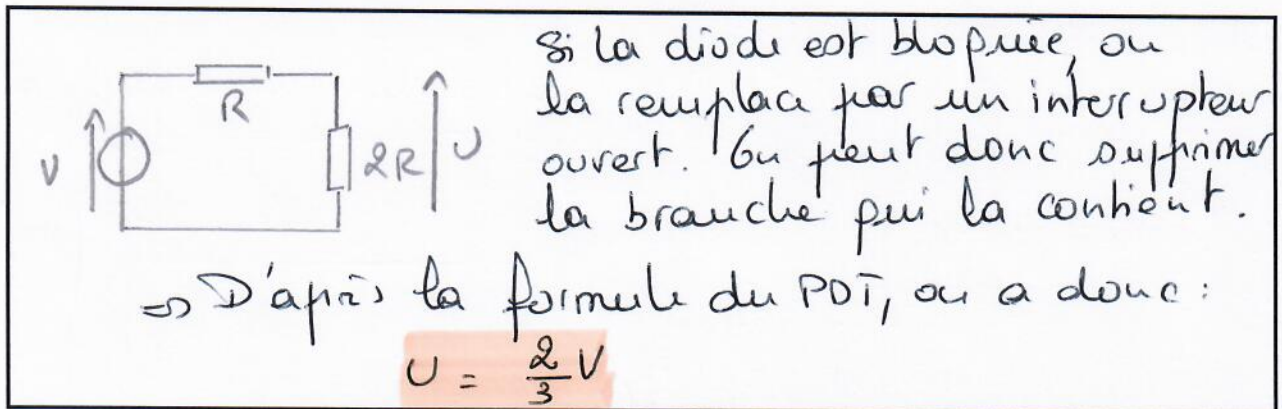 Si la diode est bloquée, on
la remplace par un interrupteur
ouvert. On peut donc supprimer
la branche qui la contient.
R
V
2R
U
=> D'après la formule du PDT, on a donc :
U = 2/3 V